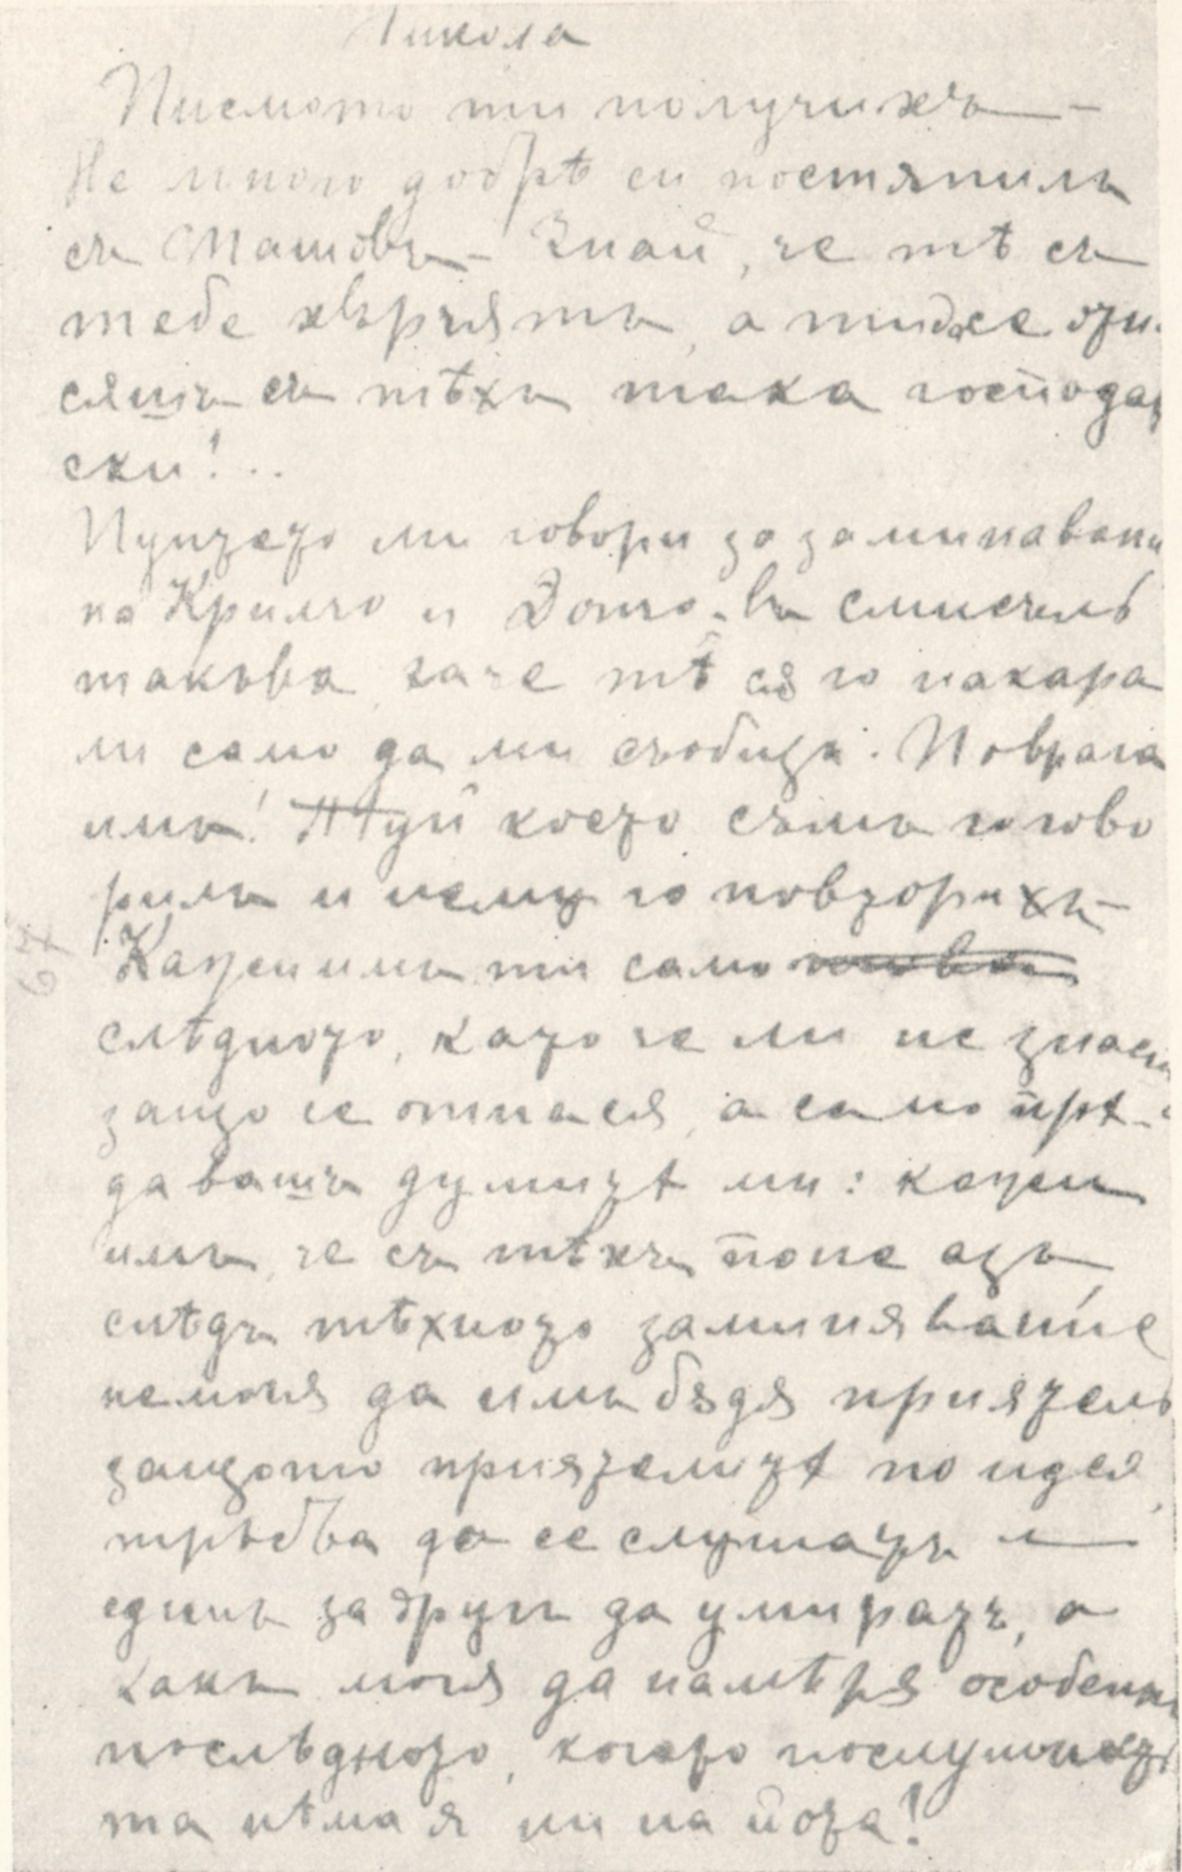 Никола
Писмото ти получихъ —
Не много добрѣ си постѫпилъ
съ Машовъ — Знай, че тѣ съ
тебе хвърчятъ, а ти
съ тѣхъ така господар
ски!..
ми говори за заминавани
на и въ смисълъ
такъва, каче тѣ сѫ го накара
ли само да ми съобщи. По врага
имъ! Туй което съмъ го гово
рилъ и нему го повторихъ —
Кажи имъ ти само
слѣдното, като че ли не знаешъ
защо се отнася, а само прѣ-
давашъ думитѣ ми: кажи
имъ, че съ тѣхъ поне азъ
слѣдъ тѣхното заминяваніе
немогѫ да имъ бѫдѫ приятель
защото приятелитѣ по идея,
трѣбва да се слушатъ и —
единъ за другъ да умиратъ, а
какъ могѫ да намѣрѫ особенно
послѣдното, когато послушностьта
та нѣма я ни на йота!
67